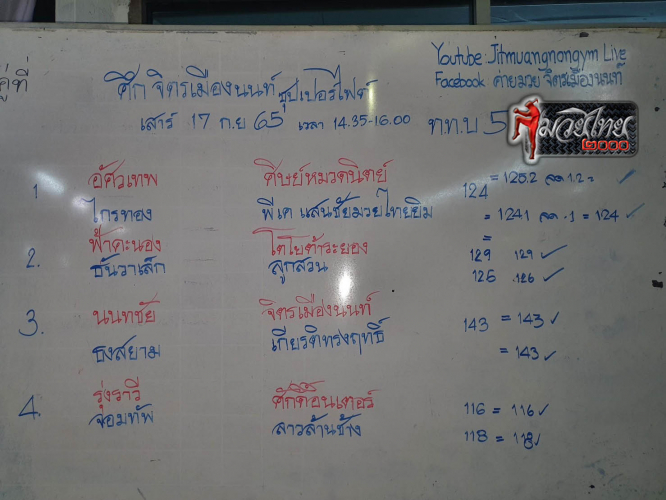 Youtube: Jitmuangnongym Live
Facebook ค่ายมวย จิตรเมืองนนท์
คู่ที่
ศึก จิตรเมืองนนท์ ซุปเปอร์ไฟต์
เสาร์ 17 ก.ย 65 เวลา 14.35-16.00 ททบ 5
มวยไทย
๒๐๐๐
1 อัศวเทพ ศิษย์หมวดนิตย์ 124 = 125.2 ลด 1.2 = ✓
ไกรทอง พีเค แสนชัยมวยไทยยิม = 124.1 ลด .1 = 124 ✓
=
2. ฟ้าคะนอง โตโยต้าระยอง 129 129 ✓
ธันวาเล็ก ลูกสวน 126 .126 ✓
3. นนทชัย จิตรเมืองนนท์ 143 = 143 ✓
ธงสยาม เกียรติทรงฤทธิ์ = 143 ✓
4. รุ่งราวี ศักดิ์อินเตอร์ 116 = 116 ✓
จอมทัพ สาวล้านช้าง 118 = 118 ✓